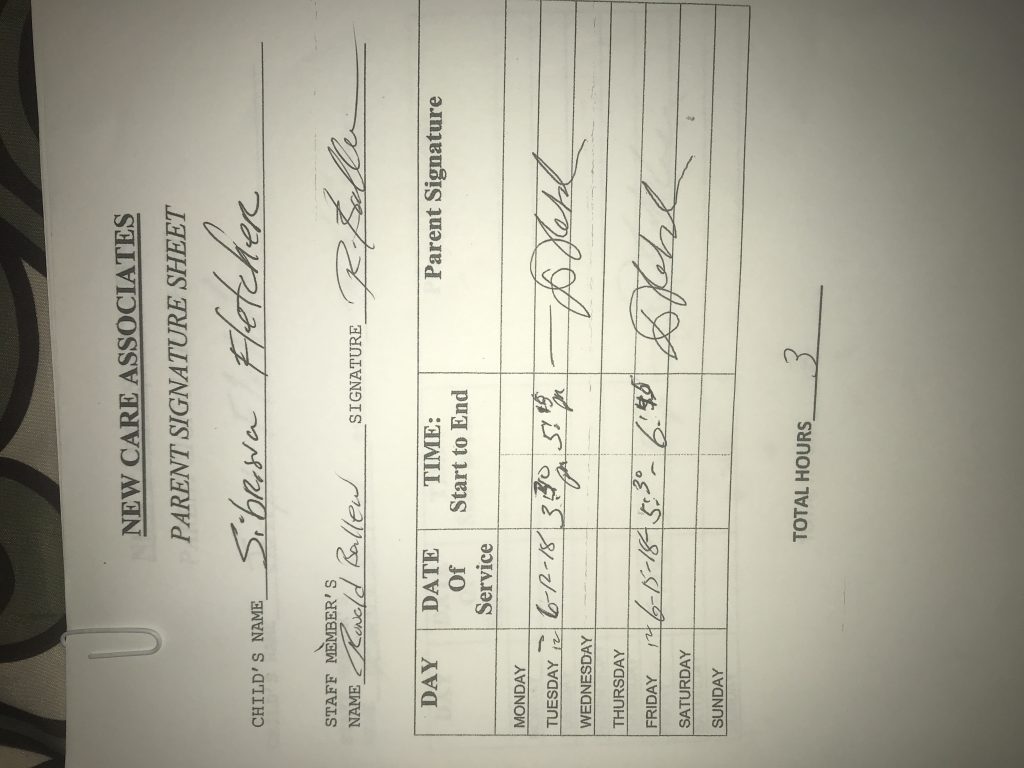 NEW CARE ASSOCIATES
PARENT SIGNATURE SHEET
CHILD'S NAME Fletcher
STAFF MEMBER'S
NAME Ronald Ballew SIGNATURE R. Ballew
DAY DATE Of Service TIME: Start to End Parent Signature
MONDAY
TUESDAY 6-12-18 5:15
WEDNESDAY
THURSDAY
FRIDAY 6-15-18 5:30 -
SATURDAY
SUNDAY
TOTAL HOURS 3